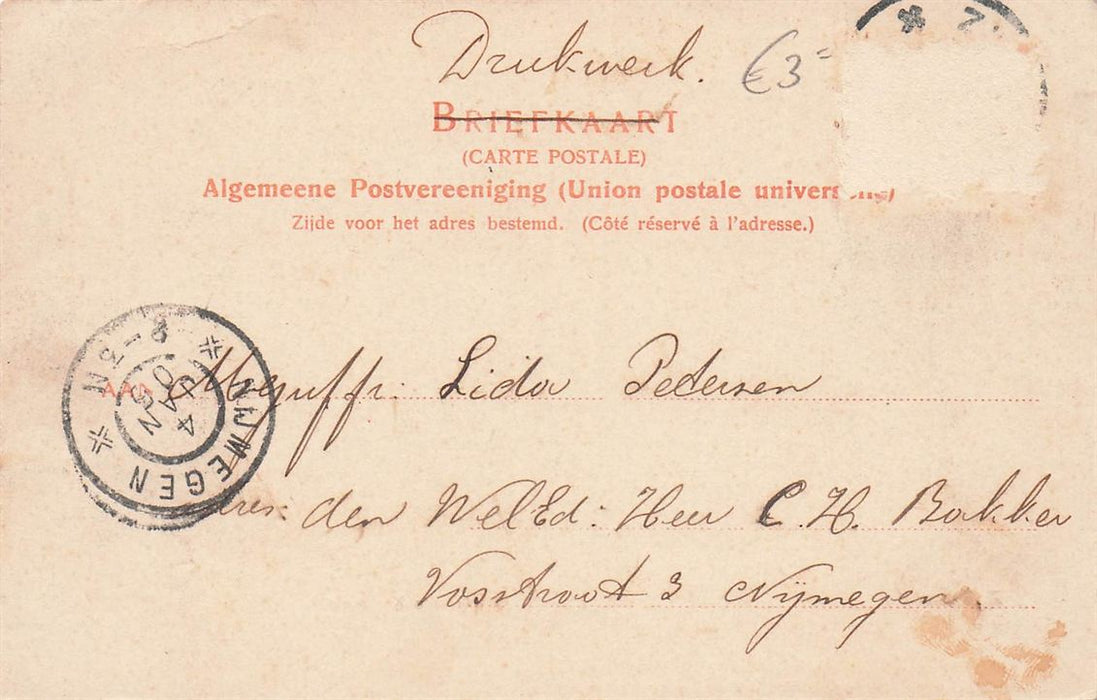 Drukwerk. €3=
BRIEFKAART
(CARTE POSTALE)
Algemeene Postvereeniging (Union postale univers
Zijde voor het adres bestemd. (Côté réservé à l'adresse.)
AAN Mejuffr: Lida Pedersen
NIJMEGEN
4 JAN
den WelEd: Heer C. H. Bakker
Vosstraat 3 Nijmegen